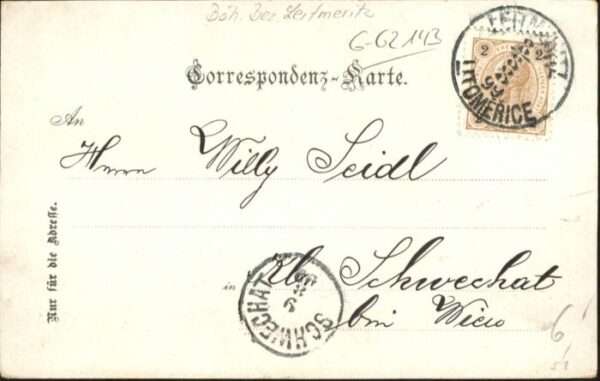 Böh. Bez. Leitmeritz
G-62143
LEITMERITZ
2 2
99
LITOMERICE
Correspondenz-Karte.
An
Herrn Willy Seidl
Nur für die Adresse.
in Kl. Schwechat
bei Wien
SCHWECHAT
6